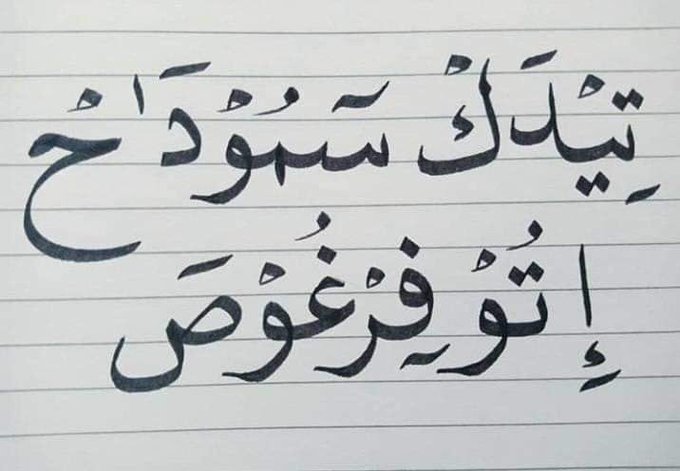 تِيْدَكْ سٓمُوْدَٰحْ
إِتُوْ فِرْغُوْصَ